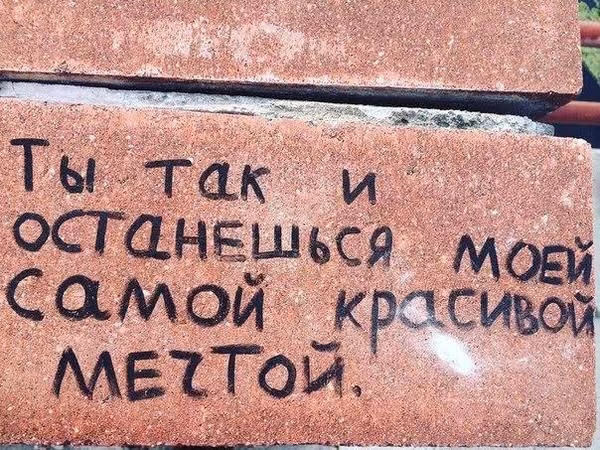 Ты так и
останешься моей
самой красивой
мечтой.